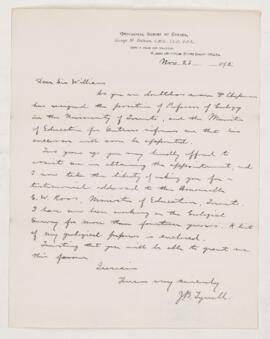 GEOLOGICAL SURVEY OF CANADA,
George M. Dawson, C.M.G., LL.D., F.R.S.
Nov. 23 189
Dear Sir William
As you are doubtless aware Dr Chapman
has resigned the position of Professor of Geology
in the University of Toronto, and the Minister
of Education for Ontario informs me that his
successor will soon be appointed.
Two years ago you very kindly offered to
assist me in obtaining the appointment, and
I now take the liberty of asking you for a
testimonial addressed to the Honourable
G. W. Ross, Minister of Education, Toronto.
I have now been working on the Geological
Survey for more than fourteen years. A list
of my geological papers is enclosed.
Trusting that you will be able to grant me
this favour
I remain
Yours very sincerely
J. B. Tyrrell.